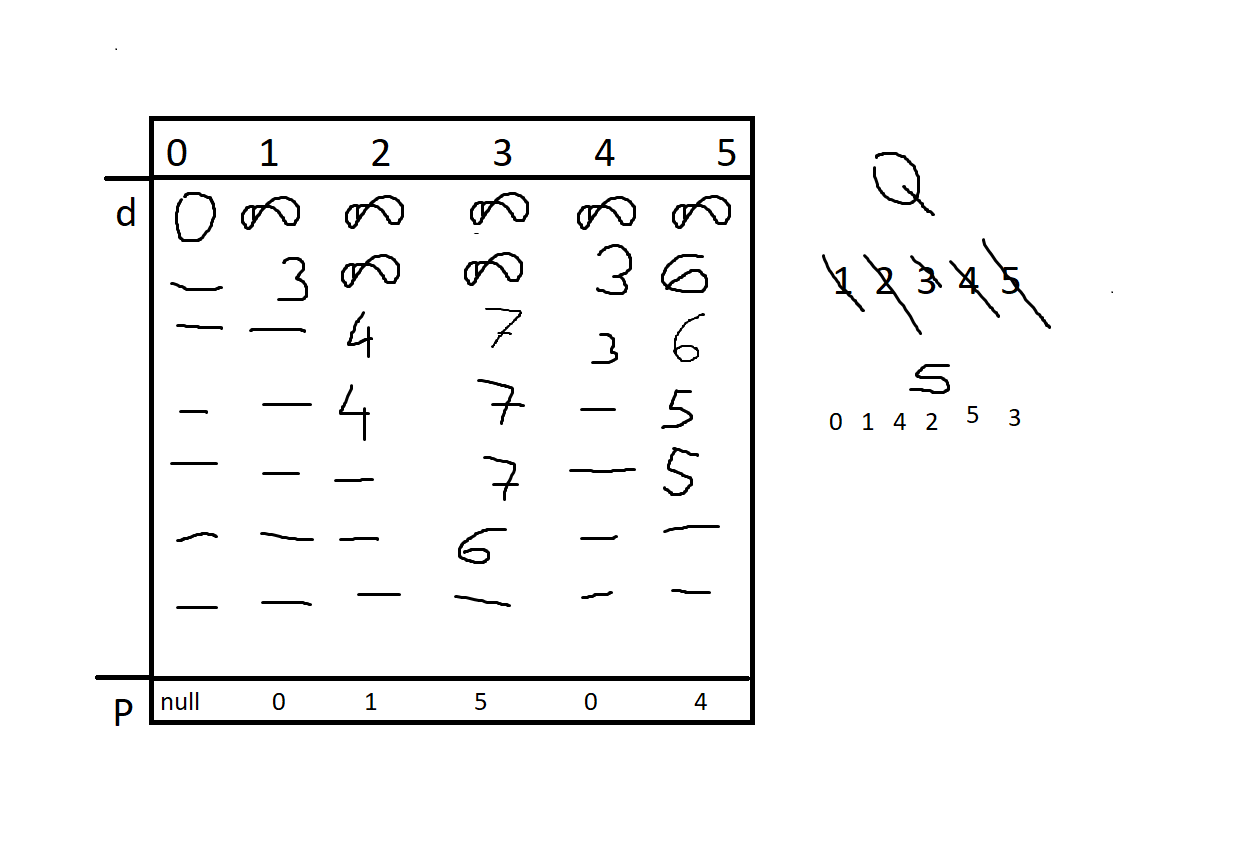 0 1 2 3 4 5
d 0 ∞ ∞ ∞ ∞ ∞
— 3 ∞ ∞ 3 6
— — 4 7 3 6
— — 4 7 — 5
— — — 7 — 5
— — — 6 — —
— — — — — —
P null 0 1 5 0 4
Q
1 2 3 4 5
S
0 1 4 2 5 3